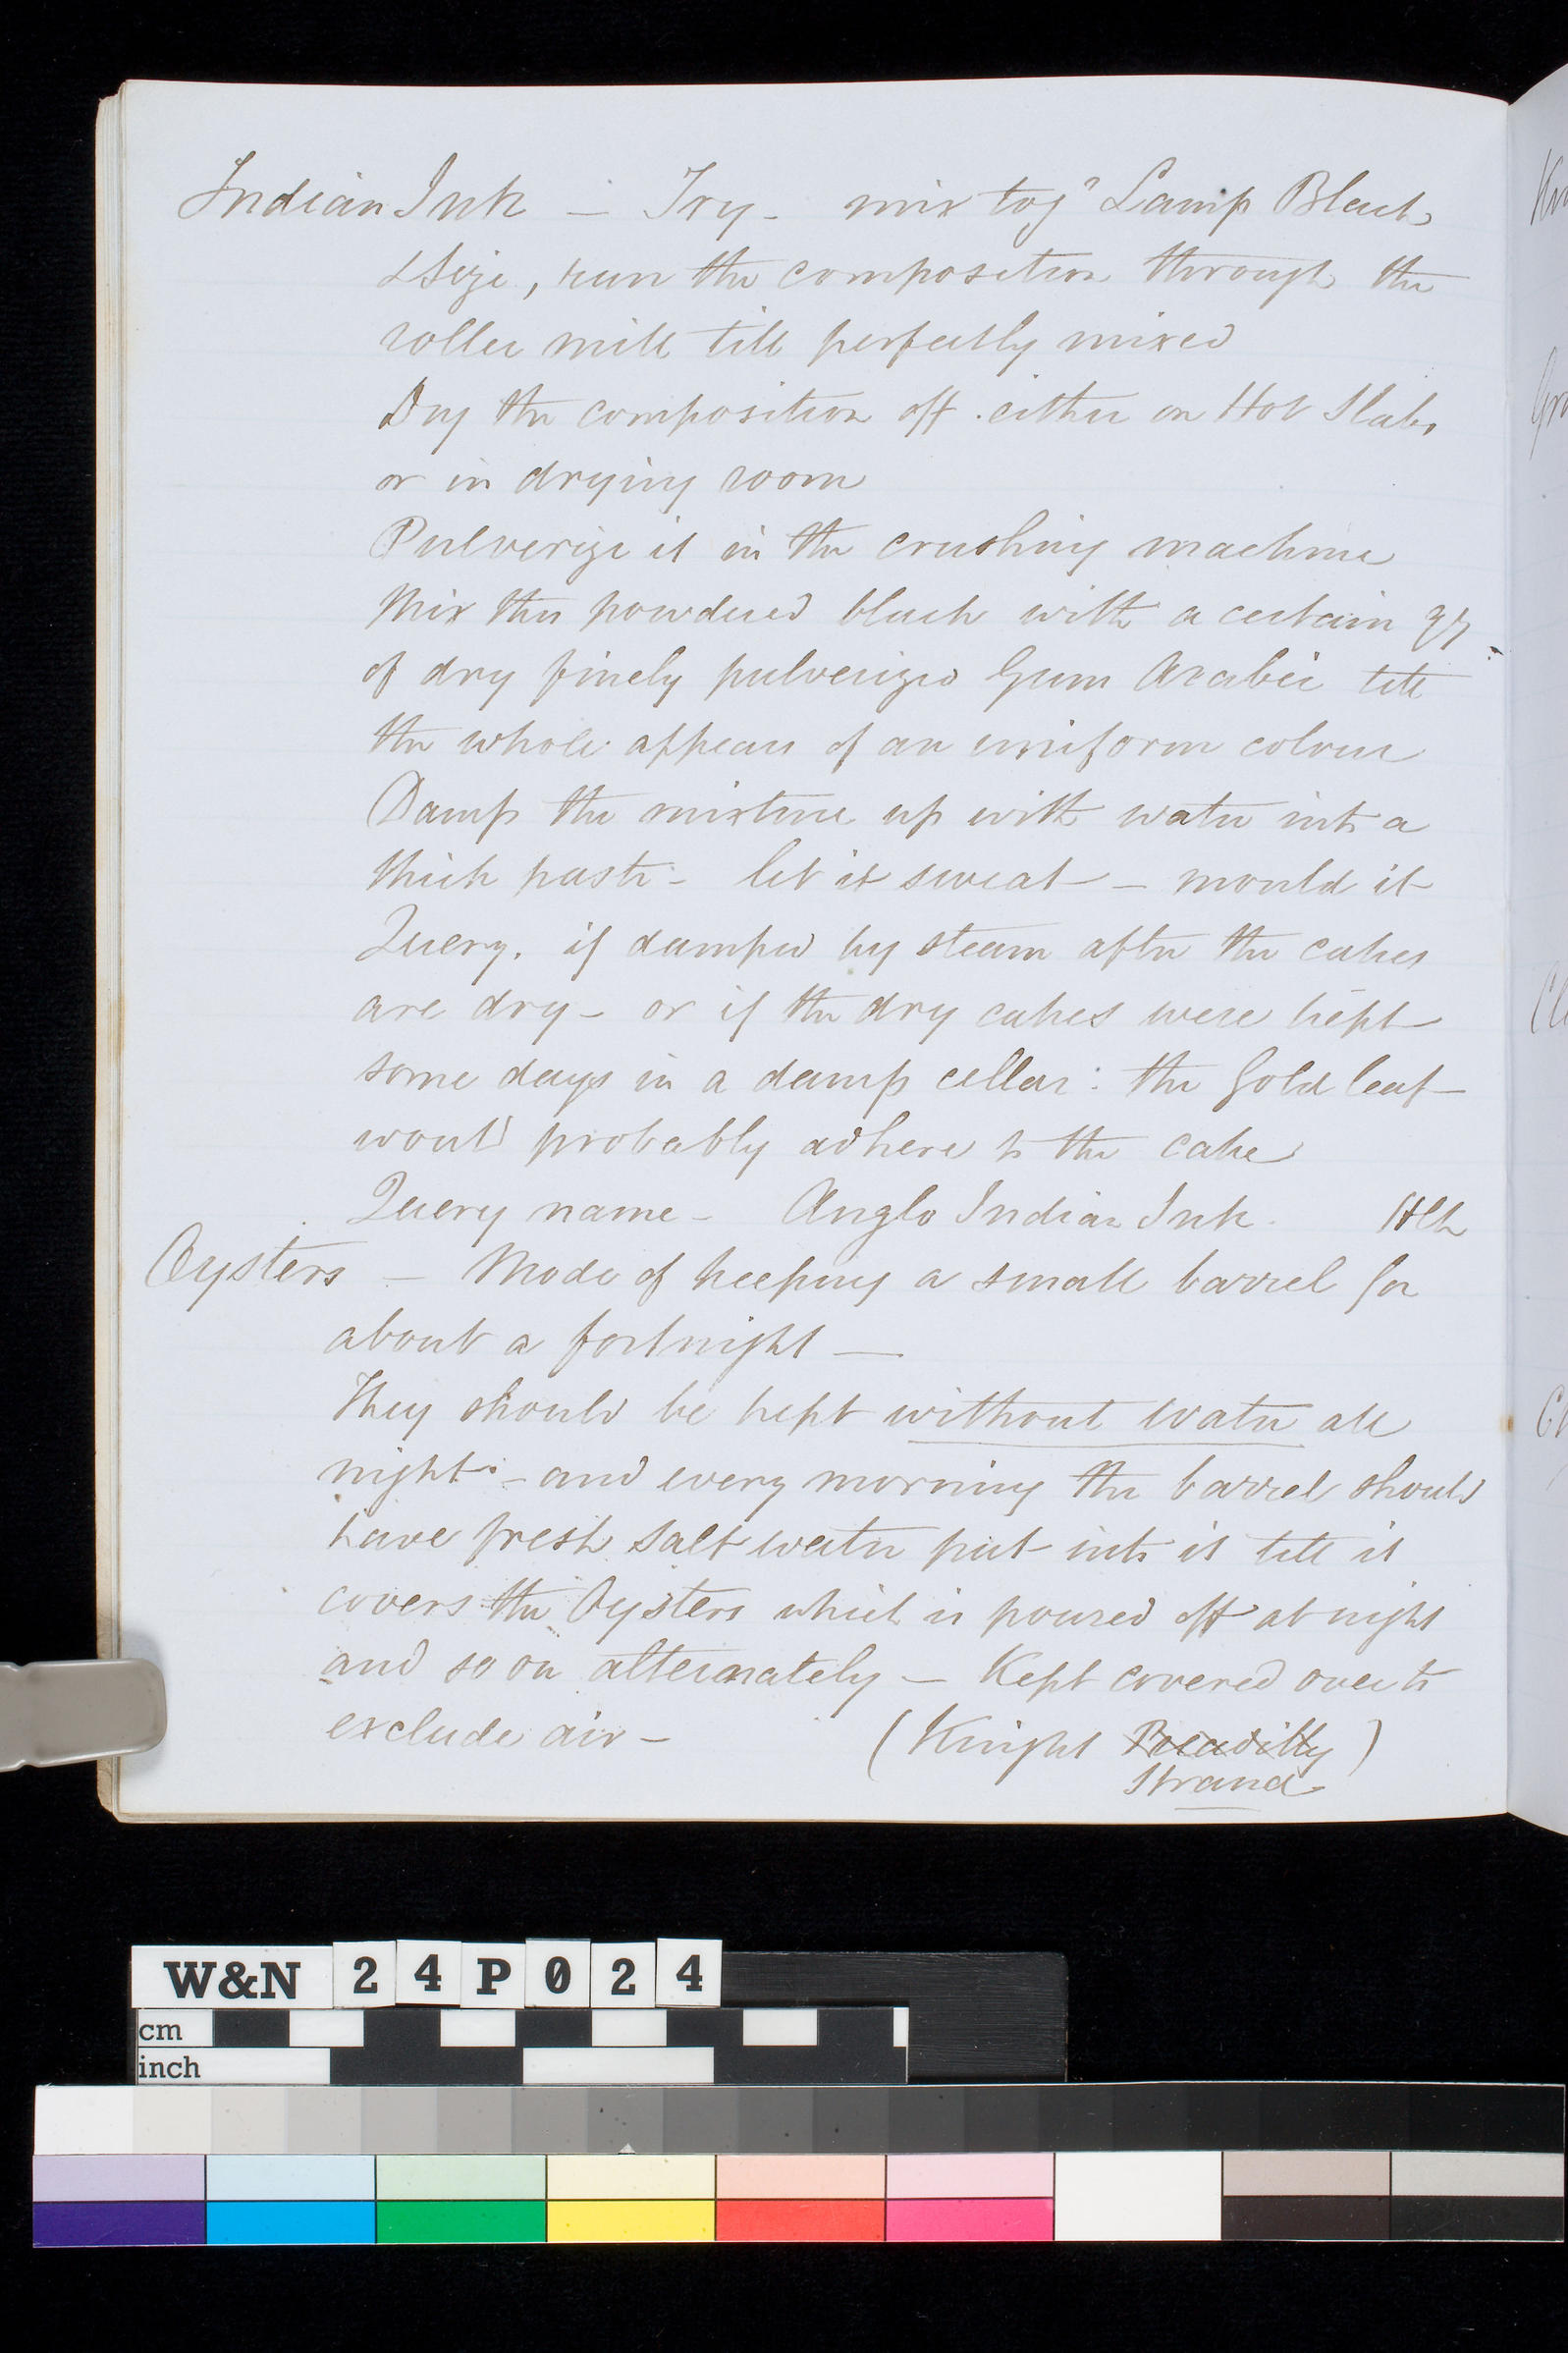 Indian Ink – Try – mix togr Lamp Black
& Size, run the composition through the
roller mill till perfectly mixed
Dry the composition off either on Hot Slabs
or in drying room
Pulverize it in the crushing machine
Mix this powdered black with a certain qty
of dry finely pulverized Gum Arabic till
the whole appears of an uniform colour
Damp the mixture up with water into a
thick paste – let it sweat – mould it
Query. if damped by steam after the cakes
are dry – or if the dry cakes were kept
some days in a damp cellar: the Gold leaf
would probably adhere to the cake
Query name – Anglo Indian Ink.
Oysters – Mode of keeping a small barrel for
about a fortnight —
They should be kept without water all
night – and every morning the barrel should
have fresh salt water put into it till it
covers the Oysters which is poured off at night
and so on alternately – Kept covered over to
exclude air – (Knight Piccadilly)
Strand
Kn
Gr
Cl
W&N 24P024
cm
inch